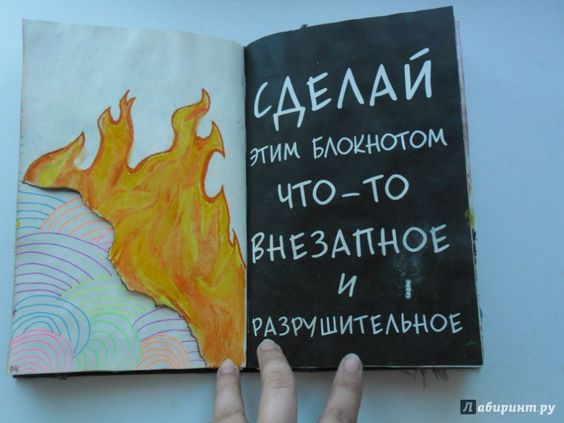 СДЕЛАЙ
ЭТИМ БЛОКНОТОМ
ЧТО-ТО
ВНЕЗАПНОЕ
И
РАЗРУШИТЕЛЬНОЕ
Лабиринт.ру